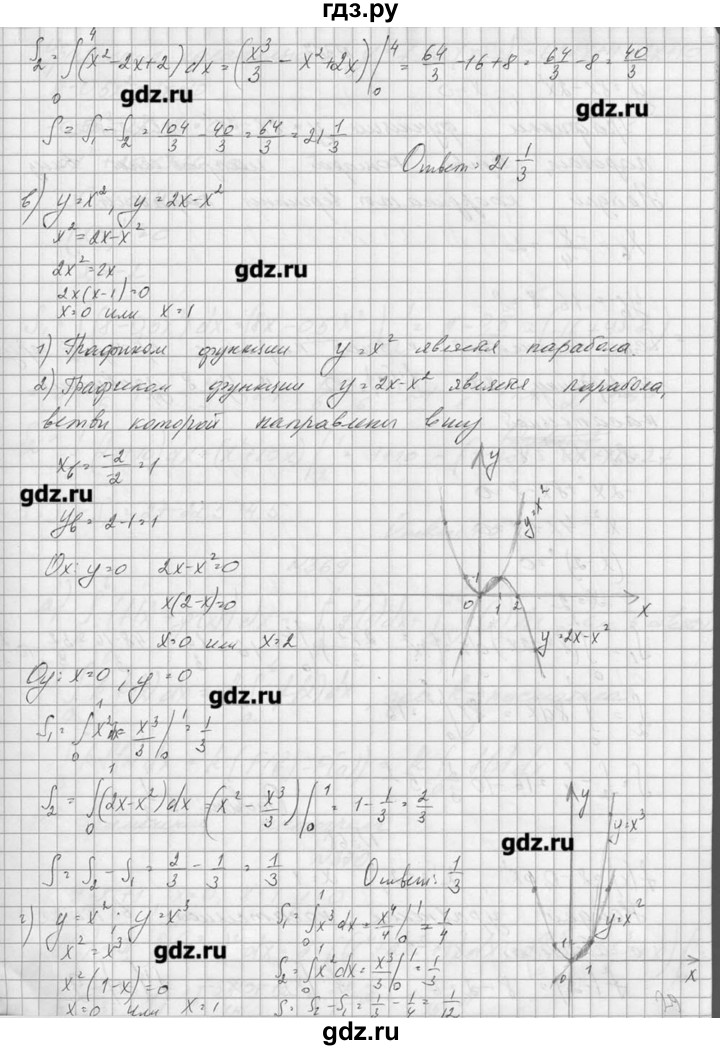 гдз.ру
S₂ = ∫₀⁴ (x² - 2x + 2) dx = (x³/3 - x² + 2x) |₀⁴ = 64/3 - 16 + 8 = 64/3 - 8 = 40/3
gdz.ru
gdz.ru
S = S₁ - S₂ = 104/3 - 40/3 = 64/3 = 21 1/3
Ответ: 21 1/3
в) y = x², y = 2x - x²
x² = 2x - x²
gdz.ru
2x² = 2x
2x(x-1) = 0
x = 0 или x = 1
1) Графиком функции y = x² является парабола.
2) Графиком функции y = 2x - x² является парабола,
ветви которой направлены вниз
xв = -2/-2 = 1
gdz.ru
yв = 2 - 1 = 1
y
y = x²
1
0 1 2 x
y = 2x - x²
Ox: y = 0 2x - x² = 0
x(2-x) = 0
x = 0 или x = 2
Oy: x = 0; y = 0
gdz.ru
S₁ = ∫₀¹ x² dx = x³/3 |₀¹ = 1/3
S₂ = ∫₀¹ (2x - x²) dx = (x² - x³/3) |₀¹ = 1 - 1/3 = 2/3
gdz.ru
S = S₂ - S₁ = 2/3 - 1/3 = 1/3 Ответ: 1/3
г) y = x²; y = x³
x² = x³
gdz.ru
x²(1-x) = 0
x = 0 или x = 1
S₁ = ∫₀¹ x³ dx = x⁴/4 |₀¹ = 1/4
S₂ = ∫₀¹ x² dx = x³/3 |₀¹ = 1/3
S = S₂ - S₁ = 1/3 - 1/4 = 1/12
y
y = x³
y = x²
1
0 1 x
gdz.ru